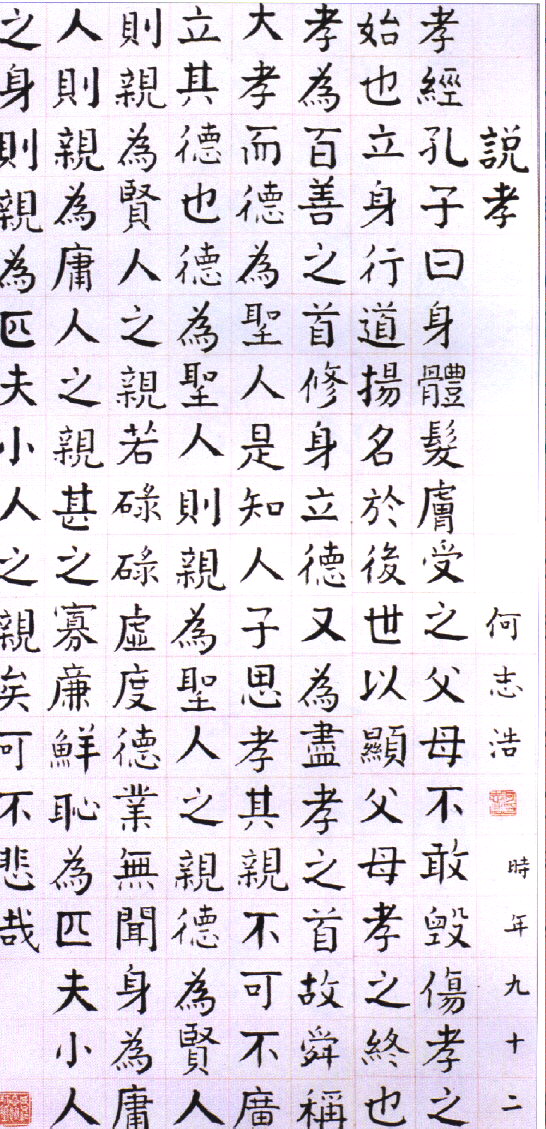 說孝 何志浩 時年九十二
孝經孔子曰身體髮膚受之父母不敢毀傷孝之
始也立身行道揚名於後世以顯父母孝之終也
孝為百善之首修身立德又為盡孝之首故舜稱
大孝而德為聖人是知人子思孝其親不可不廣
立其德也德為聖人則親為聖人之親德為賢人
則親為賢人之親若碌碌虛度德業無聞身為庸
人則親為庸人之親甚之寡廉鮮恥為匹夫小人
之身則親為匹夫小人之親矣可不悲哉